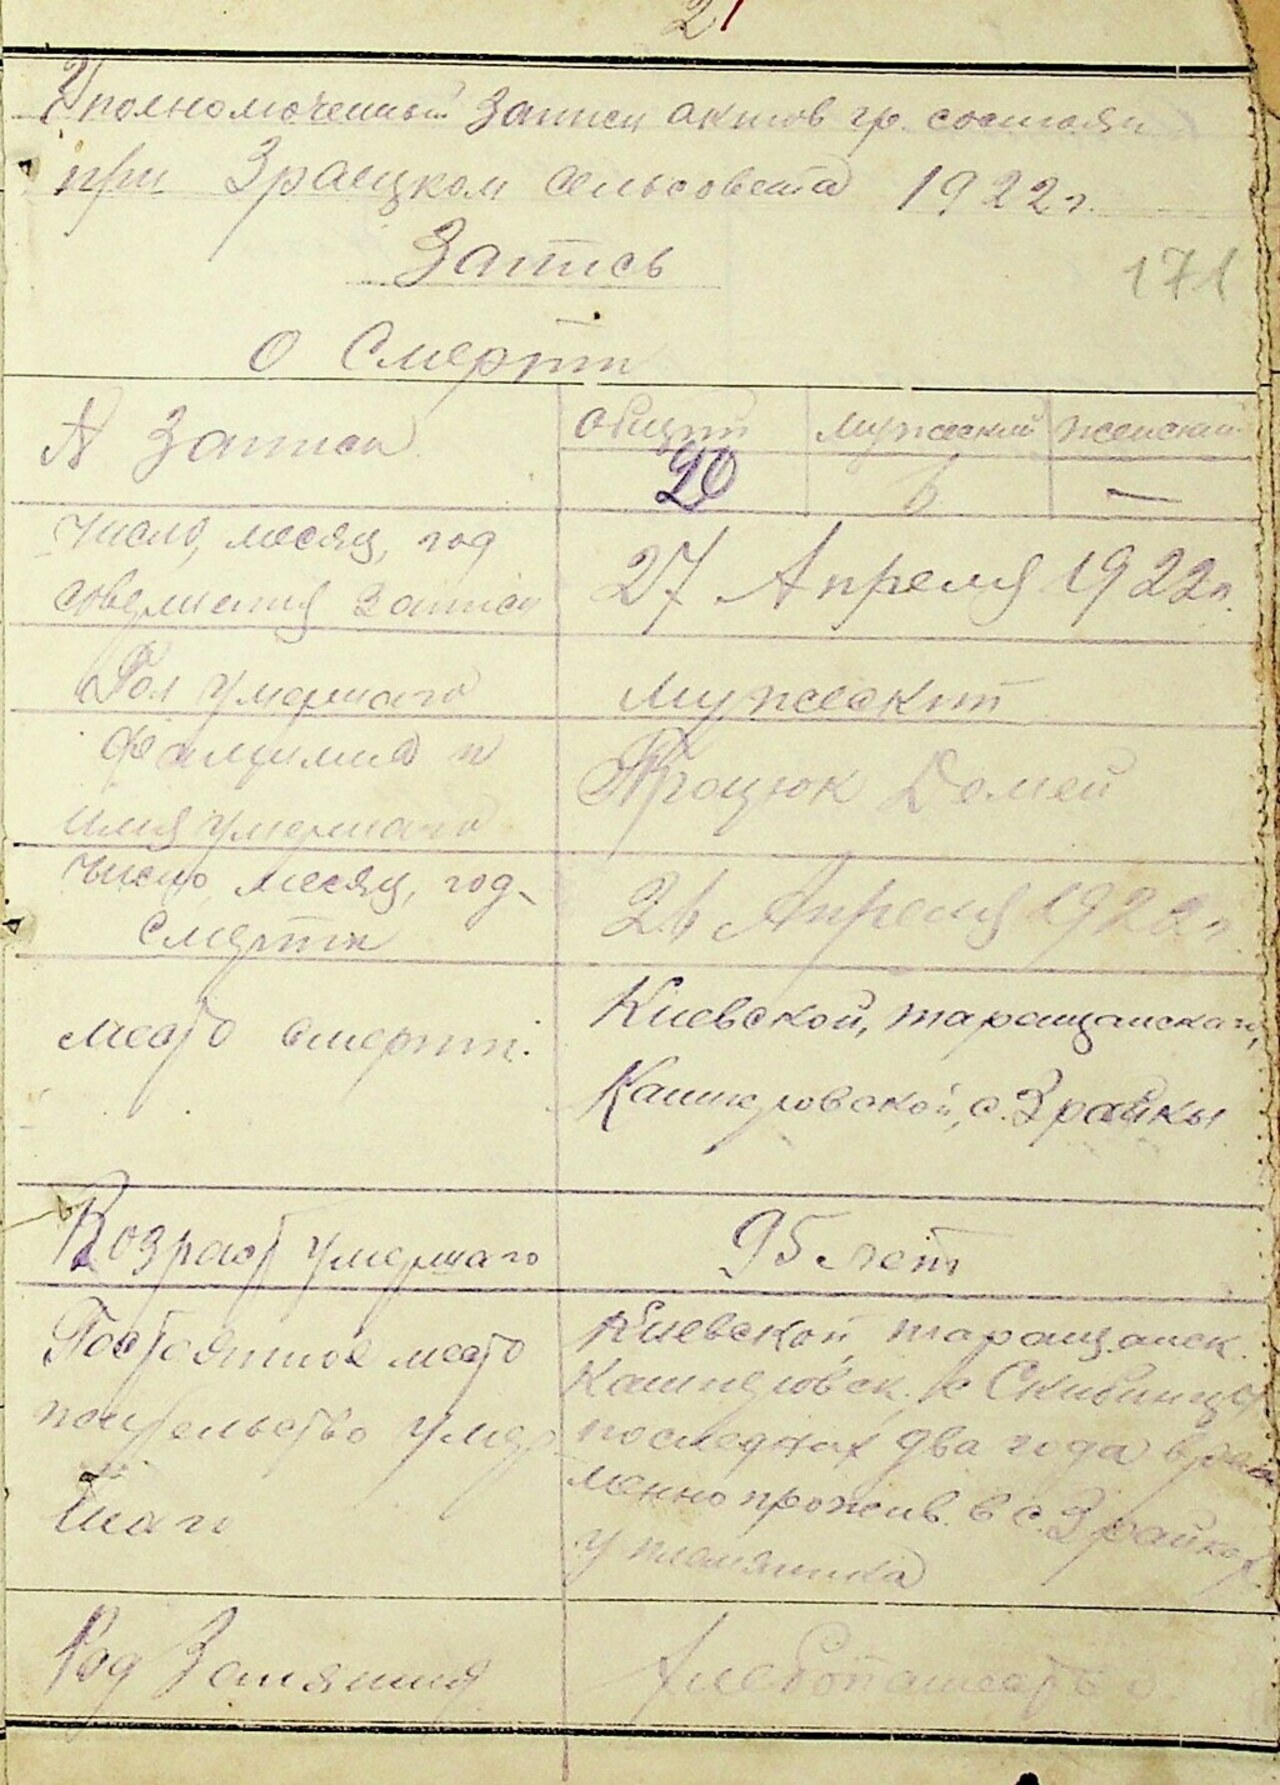 21
Уполномоченный Записи актов гр. состояни
при Зраецком сельсовета 1922 г.
Запись
171
о Смерти
№ Записи
Общий
мужеский
женский
20
6
—
Число, месяц, год
совершения записи
27 Апреля 1922 г.
Пол умершаго
мужеский
Фамилия и
имя умершаго
Троцюк Демей
Число, месяц, год
Смерти
26 Апреля 1922 г.
место смерти.
Киевской, таращанскаго,
Кашперовской, с. Зрайки
Возраст умершаго
95 лет
Постоянное место
жительство умер
шаго
Киевской, таращанск.
Кашперовск. с Скибинцы
последних два года вре
менно прожив. в с. Зрайках
у племянника
Род Занятия
Хлебопашество